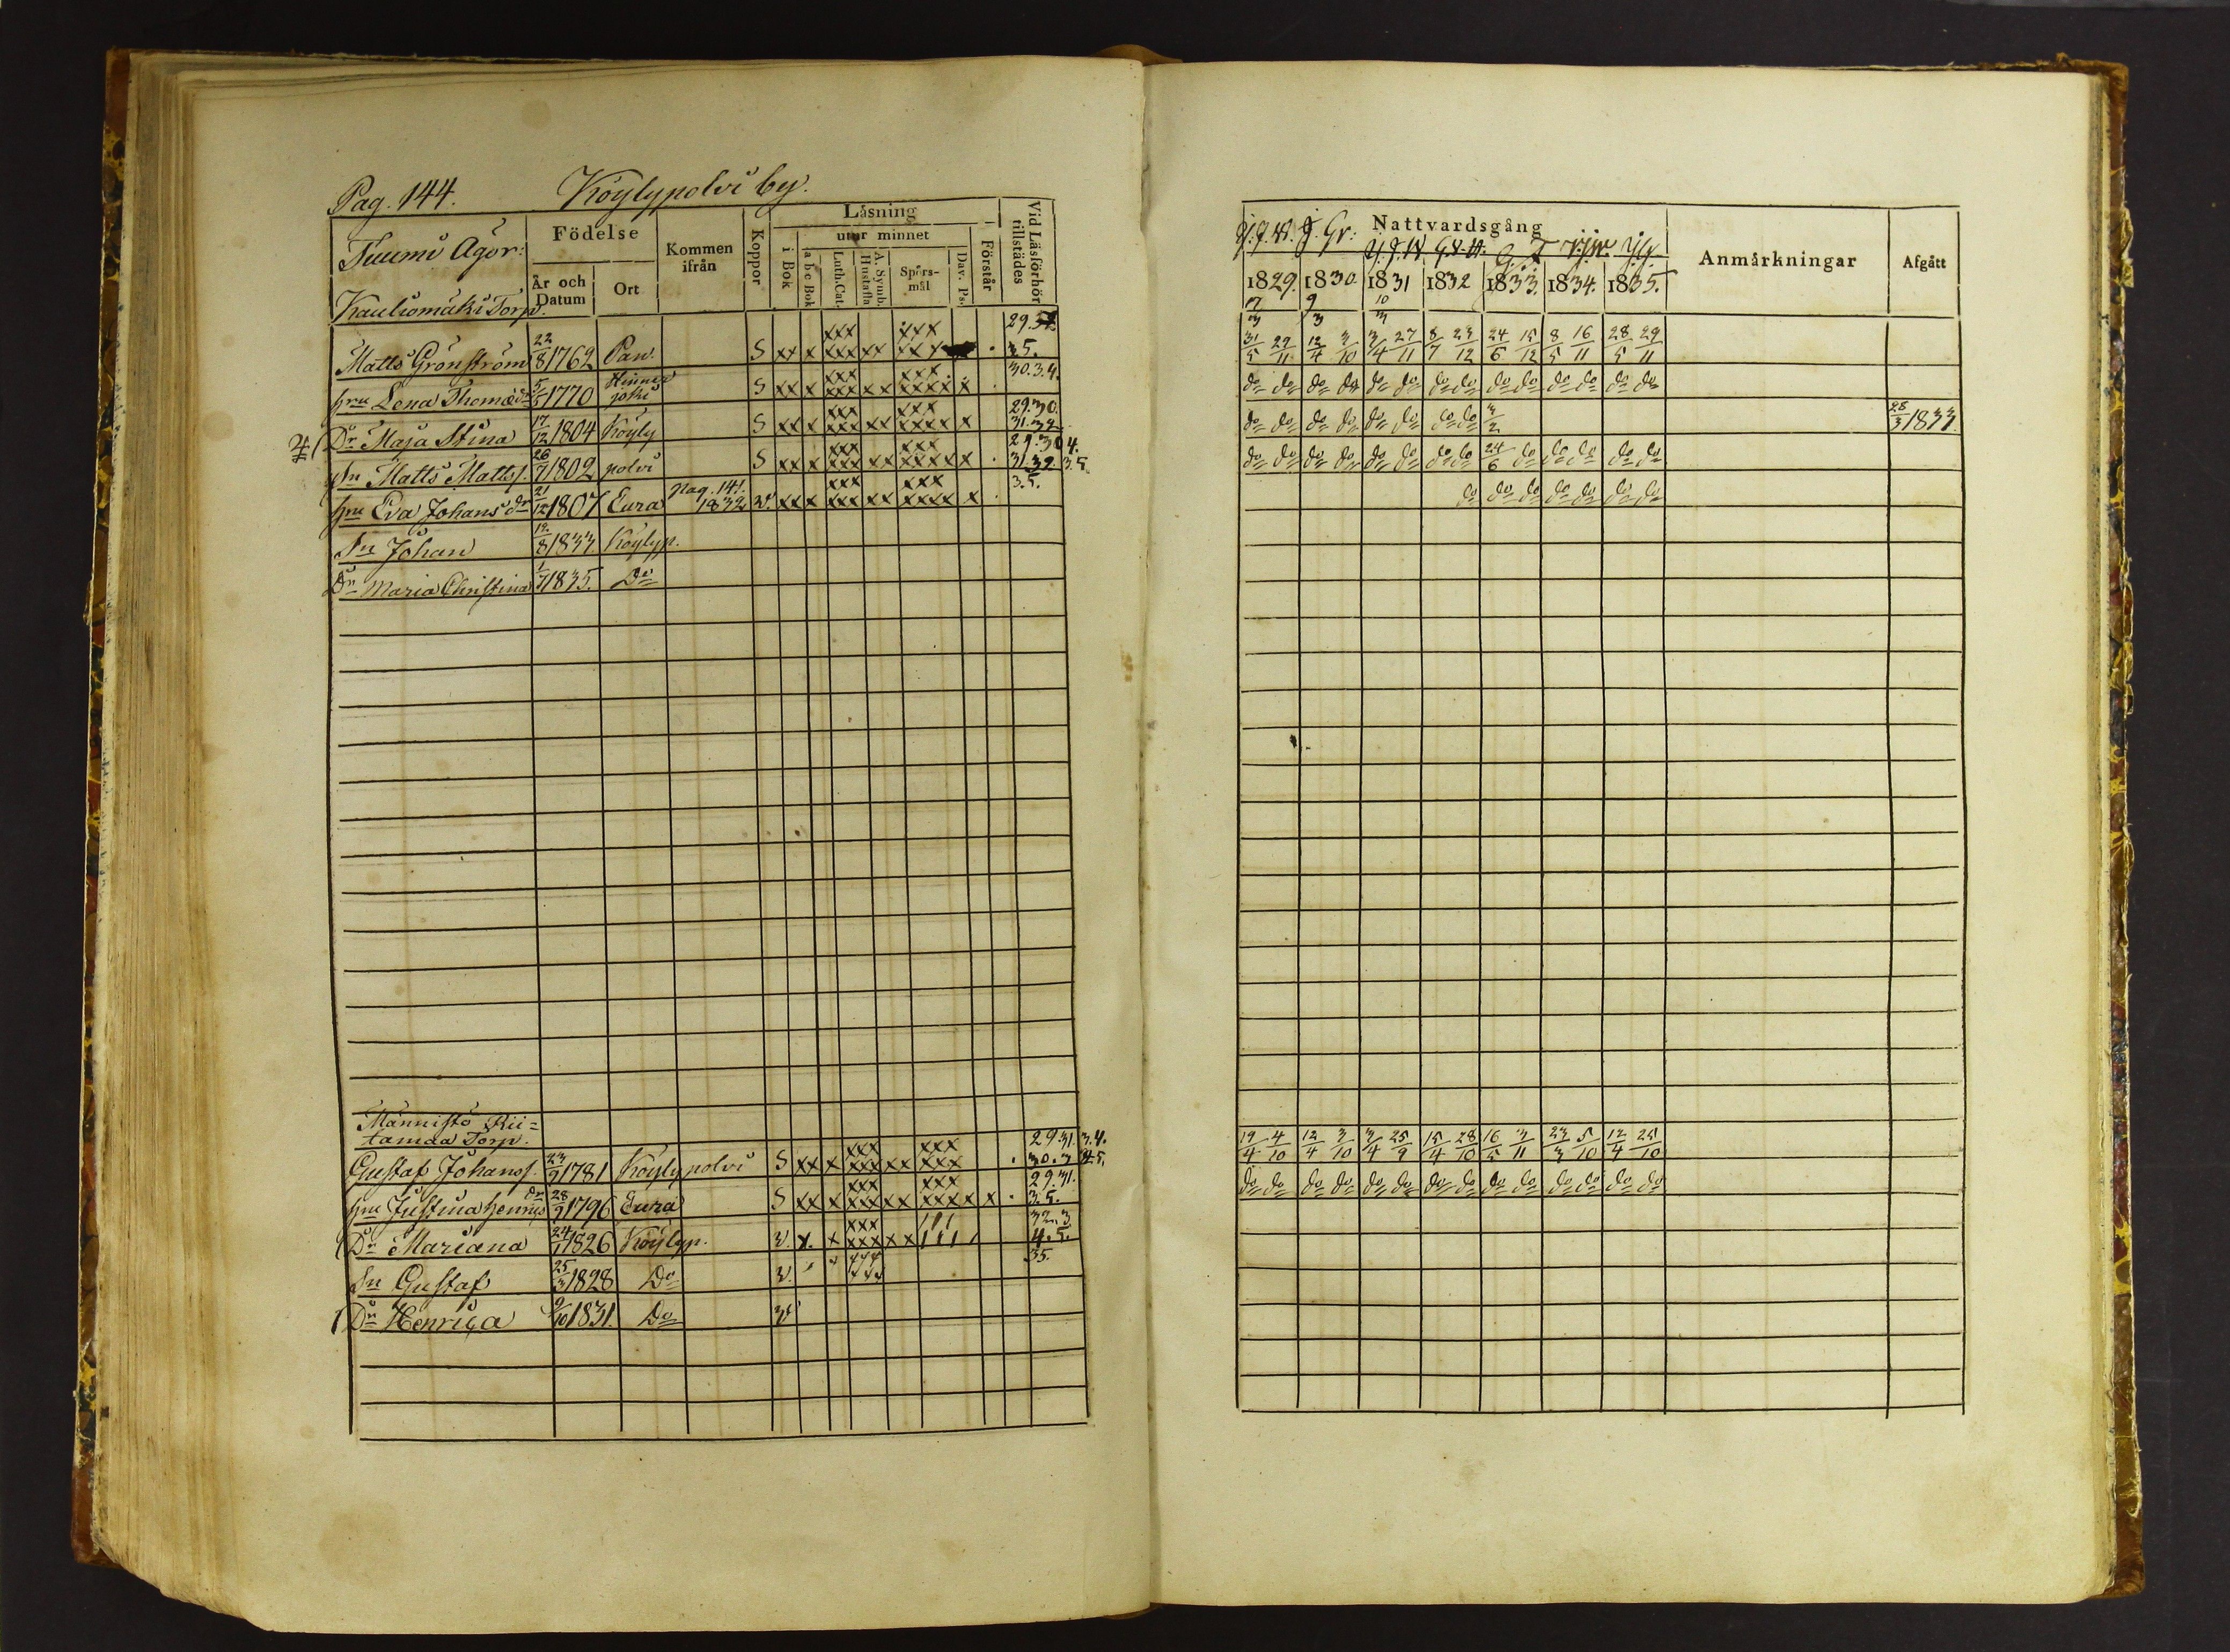 Pag. 144. Köylypolvi by.
Tuumi Ägor:
Kauliomäki Torp.
Födelse
År och Datum
Ort
Kommen ifrån
Koppor
Läsning
i Bok
utur minnet
a b c Bok
Luth. Cat.
A. Symb. Hustafla.
Spörs-mål
Dav. Ps.
Förstår
Vid Läsförhör tillstädes
Matts Grönström 22/8 1762 Pan. S xx x xxx xxx xx xxx xxx 29. 35.
hru Lena Thomædr 5/5 1770 Hinnerjoki S xx x xxx xxx xx xxx xxxx x 30.3.4.
Dr Maja Stina 17/12 1804 Köyly S xx x xxx xxx xx xxx xxxx x 29.30. 31.32
Sn Matts Mattss. 26/7 1802 polvi S xx x xxx xxx xx xxx xxxx x 29.30 4. 31.32. 3.5.
hru Eva Johansdr 21/12 1807 Eura pag. 141. 1832 v. xx x xxx xxx xx xxx xxxx x 3.5.
Sn Johan 12/8 1833 Köylyp.
Dr Maria Christina 1/7 1835. Do
Männistö Rii=
tamaa Torp.
Gustaf Johanss. 23/9 1781 Köylypolvi S xx x xxx xxx xx xxx xxx 29 31. 3.4. 30.3 4.5.
hru Justina Henricsdr 28/9 1796 Eura S xx x xxx xxx xx xxx xxxx x 29.31. 3.5.
Dr Mariana 24/1 1826 Köylyp. v. x. x xxx xxx xx 32.3 4.5.
Sn Gustaf 25/3 1828 Do v. 35.
Dr Henrica 9/10 1831. Do v
Nattvardsgång
Anmärkningar
Afgått
1829. 1830. 1831 1832 1833. 1834. 1835.
31/5 29/11 12/4 3/10 3/4 27/11 8/7 23/12 24/6 15/12 8/5 16/11 28/5 29/11
do do do do do do do do do do do do do do
do do do do do do do do 3/2 28/3 1833.
do do do do do do do do 24/6 do do do do do
do do do do do do do
19/4 4/10 12/4 3/10 3/4 25/9 15/4 28/10 16/5 3/11 23/3 5/10 12/4 25/10
do do do do do do do do do do do do do do